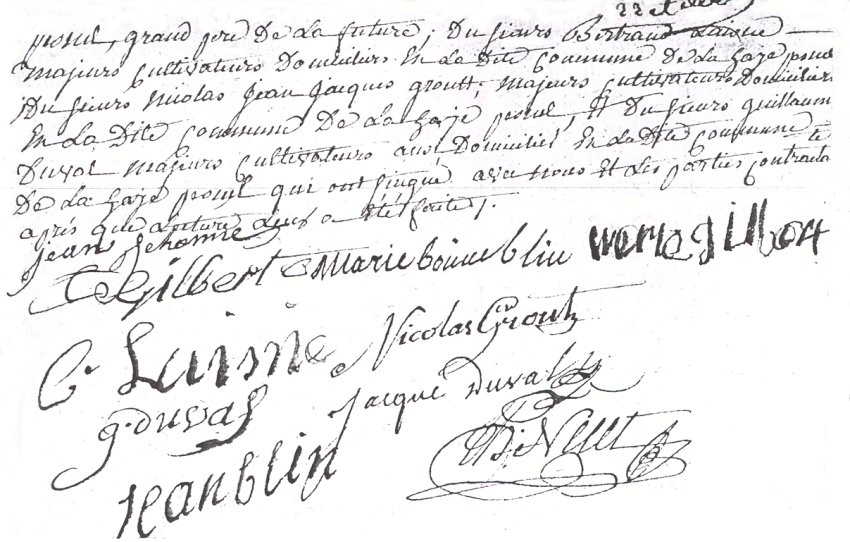 pesnel, grand pere De La future, Du sieurs Bertrand Laisné
majeurs Cultivateurs Domicilies En La Dite Commune De La haje pesnel
Du sieurs Nicolas Jean Jacques groult, majeurs cultivateurs Domicilies
En La Dite Commune De La haje pesnel, Et Du sieurs guillaume
Duval majeurs cultivateurs aussi Domicilié En La Dite Commune
De La haje pesnel qui ont singné avec nous Et Les parties Contracta
aprés que Lecture Leurs a Eté faite /.
jean
Gilbert Marie bonne blin marie gilbert
Nicolas Groult
g. Duval Jacque Duval
Jean blin